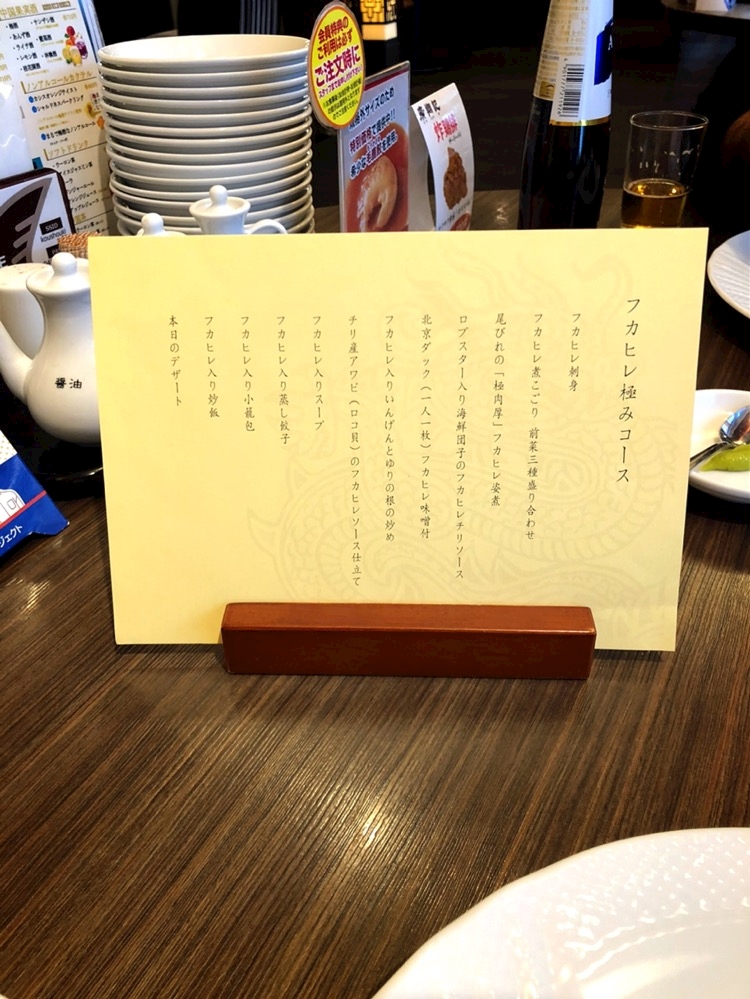 フカヒレ極みコース
フカヒレ刺身
フカヒレ煮こごり 前菜三種盛り合わせ
尾びれの「極肉厚」フカヒレ姿煮
ロブスター入り海鮮団子のフカヒレチリソース
北京ダック(一人一枚)フカヒレ味噌付
フカヒレ入りいんげんとゆりの根の炒め
チリ産アワビ(ロコ貝)のフカヒレソース仕立て
フカヒレ入りスープ
フカヒレ入り蒸し餃子
フカヒレ入り小籠包
フカヒレ入り炒飯
本日のデザート
会員特典の
ご利用は必ず
ご注文時に
規格外サイズのため
醤油
ノンアルコールカクテル
ソフトドリンク
SSID